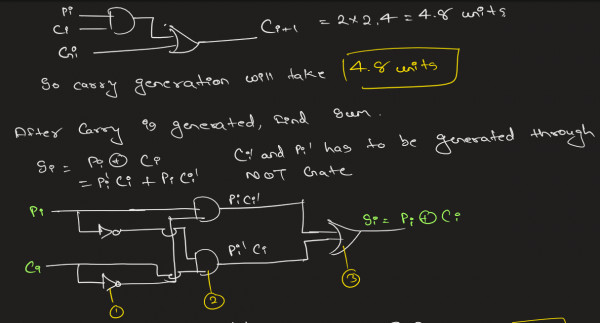 Pi
Ci
Gi
Ci+1 = 2x2.4 = 4.8 units
So carry generation will take 4.8 units
After Carry is generated, find sum.
Si = Pi ⊕ Ci
= Pi'Ci + PiCi'
Ci' and Pi' has to be generated through
NOT Gate
Pi
PiCi'
Si = Pi ⊕ Ci
Pi'Ci
Ci
①
②
③